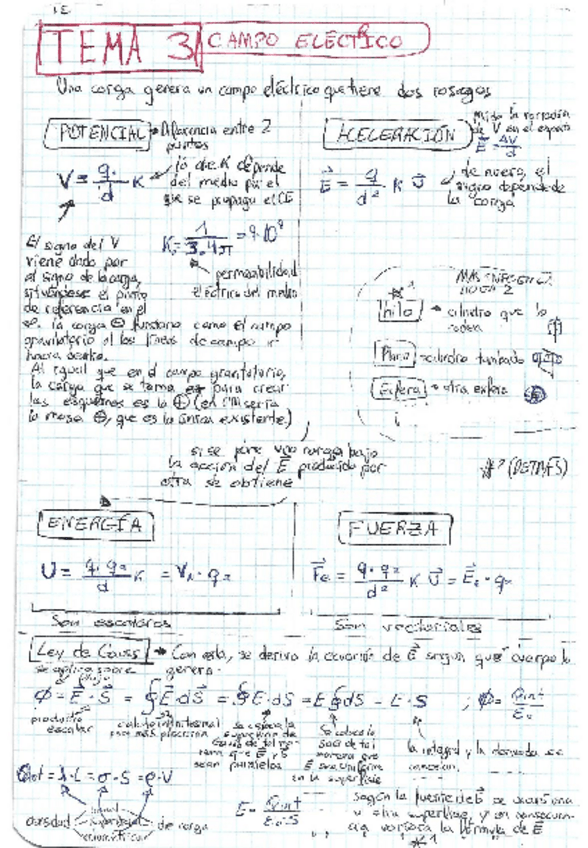 TEMA 3 CAMPO ELÉCTRICO
Una carga genera un campo eléctrico que tiene dos rasgos
POTENCIAL → Diferencia entre 2
puntos
V = q/d K
la cte. K depende
del medio por el
que se propaga el CE
K = 1/ 4π = 9·10⁹
permeabilidad
eléctrica del medio
El signo del V
viene dado por
el signo de la carga,
el punto
de referencia en el
∞. la carga ⊖ funciona como el campo
gravitatorio al las líneas de campo ir
hacia dentro.
Al igual que en el campo gravitatorio,
la carga que se toma para crear
los esquemas es la ⊕ (en sería
la masa ⊕, que es la única existente)
ACELERACIÓN
Mide la variación
de V en el espacio
E = ΔV/d
E = q/d² K U
de nuevo, el
signo depende de
la carga
MÁS INFO EN LA
HOJA 2
hilo → cilindro que lo
rodea
Plano → cilindro tumbado
Esfera → otra esfera
si se pone una carga bajo
la acción del E producido por
otra se obtiene
(DETRÁS)
ENERGÍA
U = q₁·q₂/d K = V₁·q₂
Son escalares
FUERZA
Fe = q·q₂/d² K U = E₁·q₂
Son vectoriales
Ley de Gauss → Con esta, se deriva la ecuación de E según qué cuerpo lo
genera.
se aplica sobre
flujo
Φ = E·S = ∮E·dS = ∮E·dS = E∮dS = E·S ; Φ = Qint/ε₀
producto
escalar
cálculo infinitesimal
para más precisión
superficie de
Gauss de tal ma-
nera que E y S
sean paralelos
de tal
manera que
E sea uniforme
en la superficie
la integral y la derivada se
cancelan.
Qint = λ·L = σ·S = ρ·V
densidad
lineal
superficial
volumétrica
de carga
E = Qint/ε₀·S
Según la fuente de E se usará una
u otra superficie, y en consecuen-
cia variará la fórmula de E